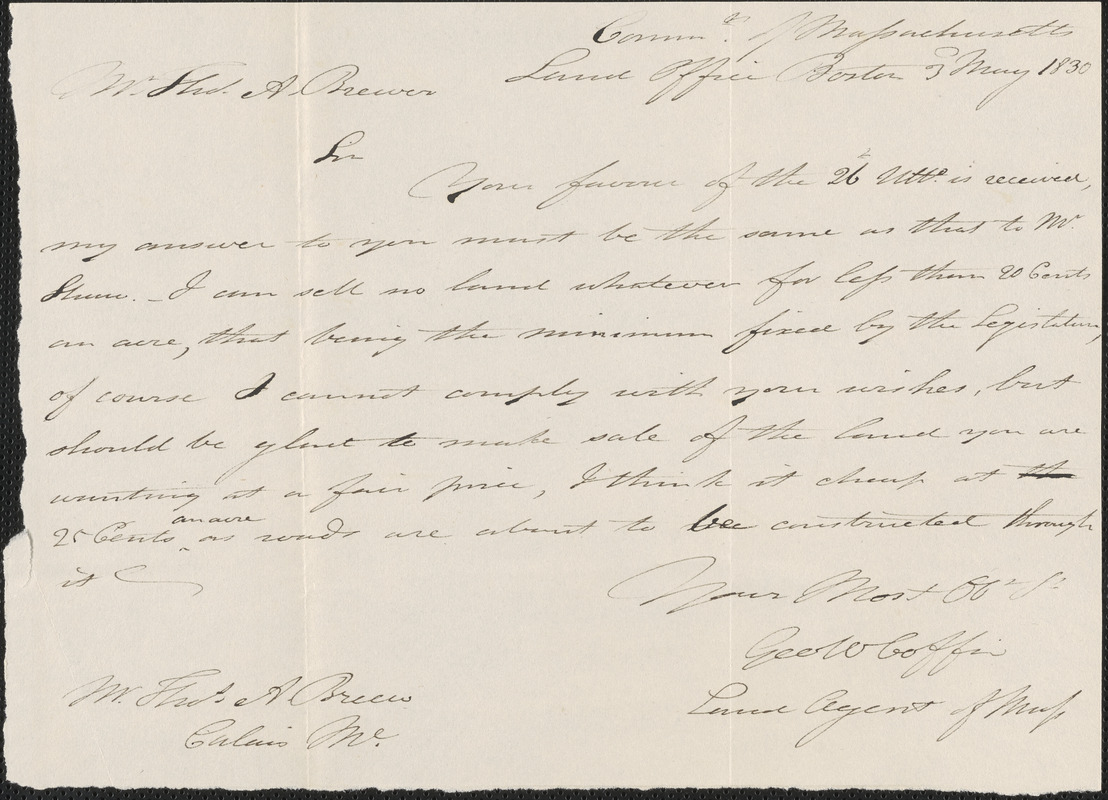 Comm.th of Massachusetts
Land Office Boston 3 May 1830
Mr. Thos. A Brewer
Sir
Your favour of the 26 Ulto. is received,
my answer to you must be the same as that to Mr.
Shaw. - I can sell no land whatever for less than 20 Cents
an acre, that being the minimum fixed by the Legislature,
of course I cannot comply with your wishes, but
should be glad to make sale of the land you are
wanting at a fair price, I think it cheap at the
25 Cents an acre as roads are about to be constructed through
it
Your Most Obt. St.
Geo W Coffin
Land Agent of Mass
Mr. Thos. A Brewer
Calais Me.